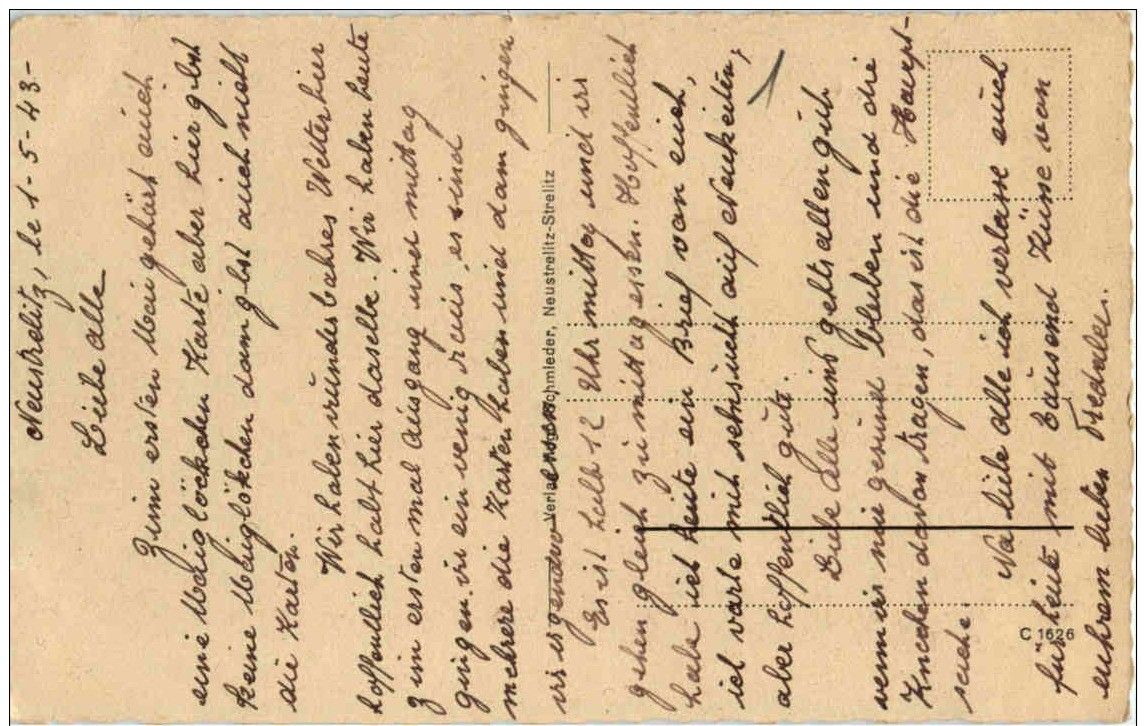 Neustrelitz, le 1-5-43-
Liebe alle
Zum ersten Mai gehört auch
eine Maiglöckchen Karte aber hier gibst
keine Maiglökchen dan gibst auch nicht
die Karten.
Wir haben wunderbahres Wetter hier
hoffendlich habt hier daselbe. Wir haben heute
zum ersten mal ausgang unser mittag
gingen wir ein wenig raus, es sind
mehrere die Karten haben und dann gingen
wir irgendwo
Verlag Schmieder, Neustrelitz-Strelitz
Es ist halb 12 Uhr mittag und wir
gehen gleich zu mittag essen. Hoffendlich
habe ich heute ein Brief von euch,
ich warte mit sehnsucht auf Neukeiten,
aber hoffendlich gute.
Liebe alle uns gehts allen gut
wenn wir nur gesund bleiben und die
Knochen davon tragen, das ist die Haupt-
sache
Na liebe alle ich verlasse euch
für heute mit tausend Küsse von
euhrem lieben
C 1626